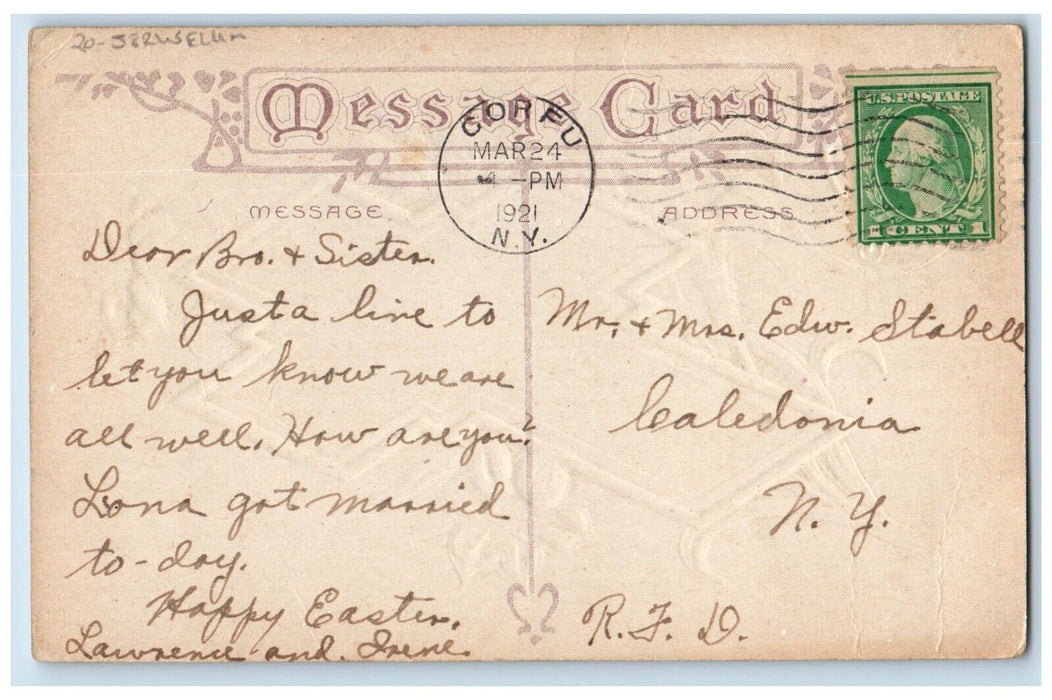 20-JERUSELUM
Message Card
CORFU
MAR 24
4 -PM
1921
N.Y.
U.S. POSTAGE
1 CENT 1
MESSAGE
ADDRESS
Dear Bro. + Sister.
Just a line to
let you know we are
all well. How are you?
Lona got married
to-day.
Happy Easter.
Lawrence and. Irene.
Mr. + Mrs. Edw. Stabell
Caledonia
N. Y.
R. F. D.